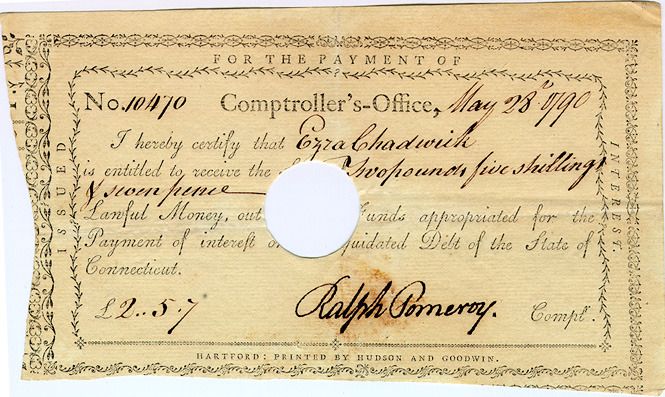 FOR THE PAYMENT OF
No. 10470 Comptroller's-Office, May 28th 1790
I hereby certify that Ezra Chadwick
is entitled to receive the Two pounds five shillings
& seven pence
Lawful Money, out Funds appropriated for the
Payment of interest on quidated Debt of the State of
Connecticut.
£ 2..5.7 Ralph Pomeroy. Comptr.
HARTFORD: PRINTED BY HUDSON AND GOODWIN.
ISSUED
INTEREST.